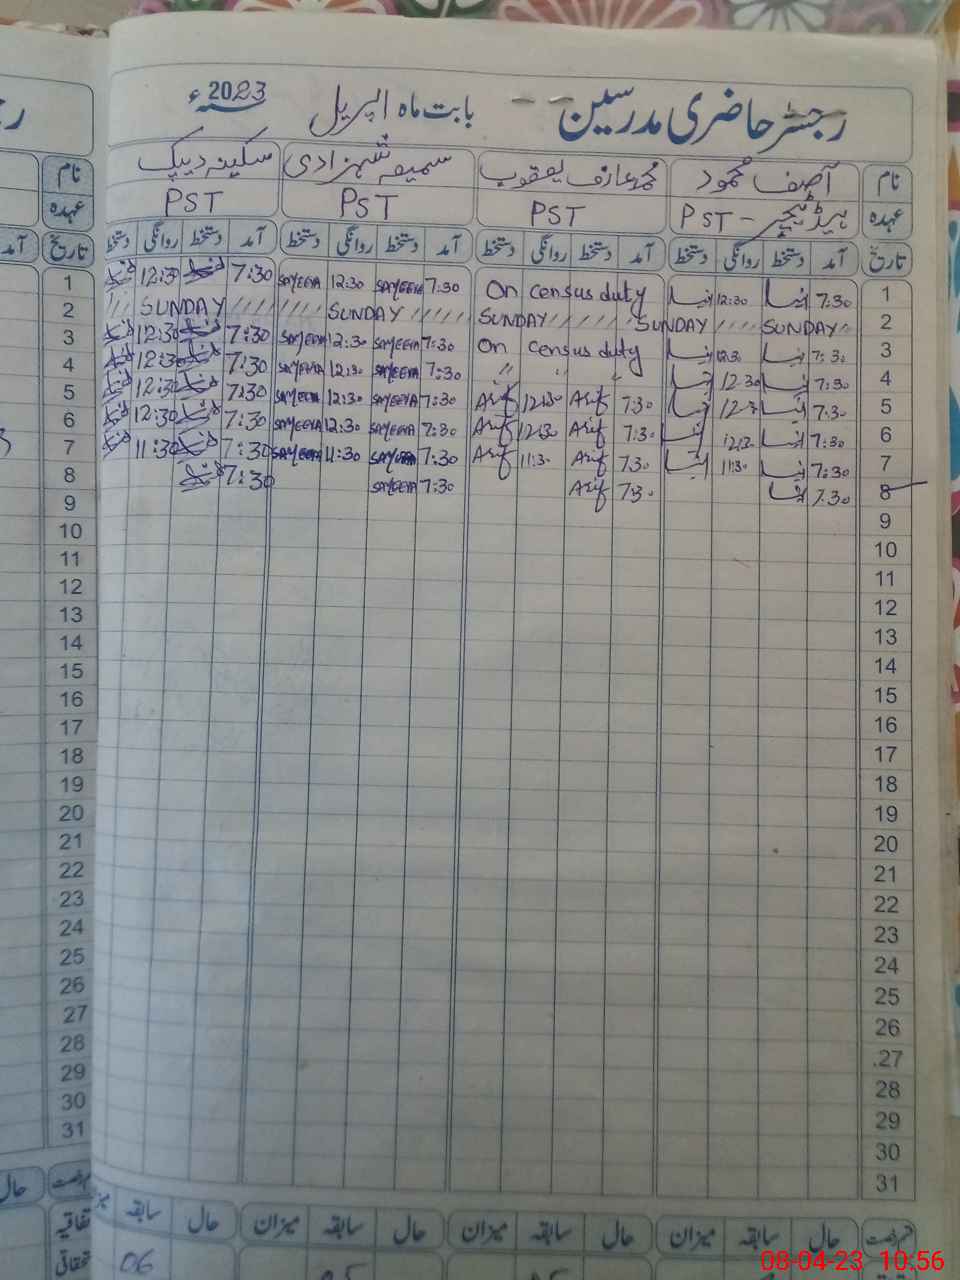 رجسٹر حاضری مدرسین بابت ماہ اپریل 2023ء
نام آصف محمود محمد عارف یعقوب سمیعہ شہزادی سکینہ دیبیک نام
عہدہ ہیڈ ٹیچر - PST PST PST PST عہدہ
تاریخ آمد دستخط روانگی دستخط آمد دستخط روانگی دستخط آمد دستخط روانگی دستخط آمد دستخط روانگی دستخط تاریخ آمد
1 7:30 12:30 On census duty 7:30 SAMEEYA 12:30 SAMEEYA 7:30 12:30 1
2 SUNDAY SUNDAY SUNDAY SUNDAY SUNDAY 2
3 7:30 12:30 On census duty 7:30 SAMEEYA 12:30 SAMEEYA 7:30 12:30 3
4 7:30 12:30 " " " 7:30 SAMEEYA 12:30 SAMEEYA 7:30 12:30 4
5 7:30 12:30 7:30 Arif 12:30 Arif 7:30 SAMEEYA 12:30 SAMEEYA 7:30 12:30 5
6 7:30 12:30 7:30 Arif 12:30 Arif 7:30 SAMEEYA 12:30 SAMEEYA 7:30 12:30 6
7 7:30 11:30 7:30 Arif 11:30 Arif 7:30 SAMEEYA 11:30 SAMEEYA 7:30 11:30 7
8 7:30 7:30 Arif 7:30 SAMEEYA 7:30 8
9 9
10 10
11 11
12 12
13 13
14 14
15 15
16 16
17 17
18 18
19 19
20 20
21 21
22 22
23 23
24 24
25 25
26 26
27 27
28 28
29 29
30 30
31 31
حال سابقہ میزان حال سابقہ میزان حال سابقہ میزان حال سابقہ حال
06
08-04-23 10:56